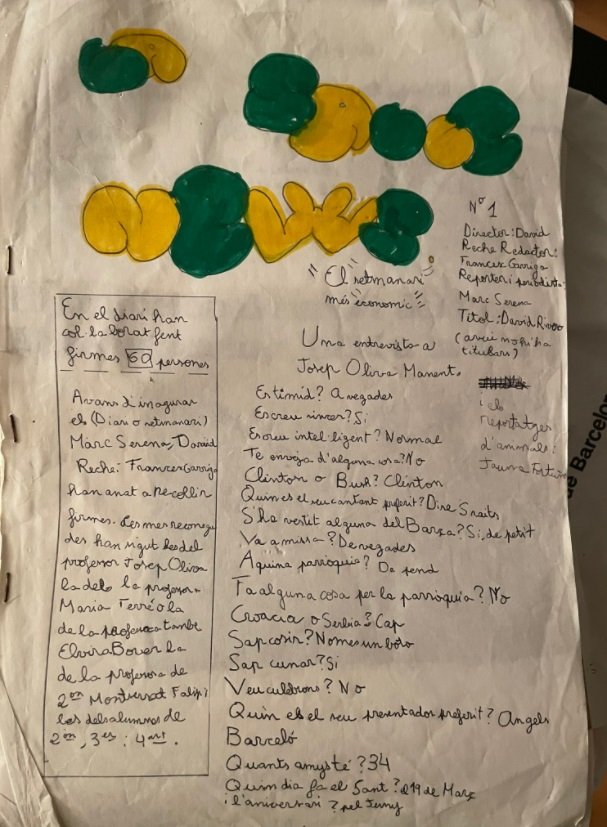 "El setmanari
més econòmic"
Nº 1
Director: David
Reche Redactor:
Francesc Garriga
Reporter i periodista:
Marc Serena
Titol: David Rivero
(avui no hi ha
titulars)
i els
reportatges
d'animals:
Jaume
En el diari han
col·laborat fent
firmes 60 persones
Avans d'inagurar
el (Diari o setmanari)
Marc Serena, David
Reche i Francesc Garriga
han anat a recollir
firmes. Les mes reconegu
des han sigut les del
professor Josep Oliva
la de la professora
Maria Ferré o la
de la professora també
Elvira Bover la
de la professora de
2on Montserrat Falip i
les dels alumnes de
2on, 3er i 4art.
Una entrevista a
Josep Oliva Manent.
Es timid? A vegades
Es creu sincer? Si
Es creu intel·ligent? Normal
Te enveja d'alguna cosa? No
Clinton o Bush? Clinton
Quin es el seu cantant preferit? Dire Straits
S'ha vestit alguna del Barça? Si, de petit
Va a missa? De vegades
A quina parròquia? De pend
Fa alguna cosa per la parròquia? No
Croacia o Serbia? Cap
Sap cosir? Nomes un botó
Sap cuinar? Si
Veu culdrons? No
Quin es el seu presentador preferit? Angels
Barceló
Quants anys té? 34
Quin dia fa el Sant? el 19 de Març
i l'aniversari? pel Juny
de Barcelon